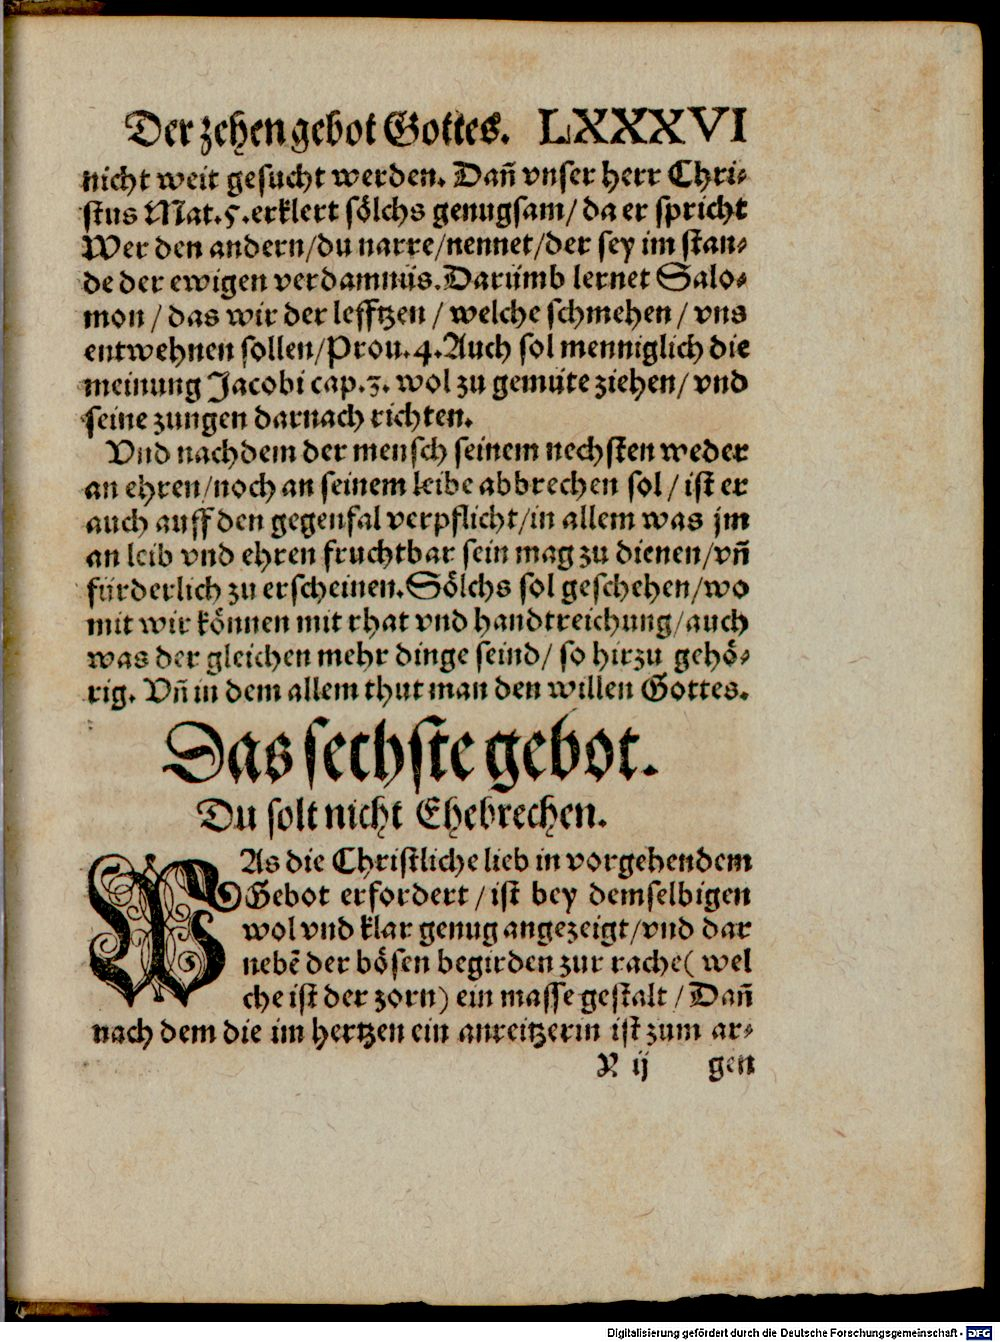 Der zehen gebot Gottes. LXXXVI
nicht weit gesucht werden. Dañ vnser herr Chri⸗
stus Mat. 5. erklert sölchs genugsam / da er spricht
Wer den andern / du narre / nennet / der sey im stan⸗
de der ewigen verdamnüs. Darümb lernet Salo⸗
mon / das wir der lefftzen / welche schmehen / vns
entwehnen sollen / Prou. 4. Auch sol menniglich die
meinung Jacobi cap. 3. wol zu gemüte ziehen / vnd
seine zungen darnach richten.
Vnd nachdem der mensch seinem nechsten weder
an ehren / noch an seinem leibe abbrechen sol / ist er
auch auff den gegenfal verpflicht / in allem was jm
an leib vnd ehren fruchtbar sein mag zu dienen / vñ
fürderlich zu erscheinen. Sölchs sol geschehen / wo
mit wir können mit rhat vnd handtreichung / auch
was der gleichen mehr dinge seind / so hirzu gehö⸗
rig. Vñ in dem allem thut man den willen Gottes.
Das sechste gebot.
Du solt nicht Ehebrechen.
WAs die Christliche lieb in vorgehendem
Gebot erfordert / ist bey demselbigen
wol vnd klar genug angezeigt / vnd dar
nebē der bösen begirden zur rache ( wel
che ist der zorn ) ein masse gestalt / Dañ
nach dem die im hertzen ein anreitzerin ist zum ar⸗
Y ij gen
Digitalisierung gefördert durch die Deutsche Forschungsgemeinschaft - DFG